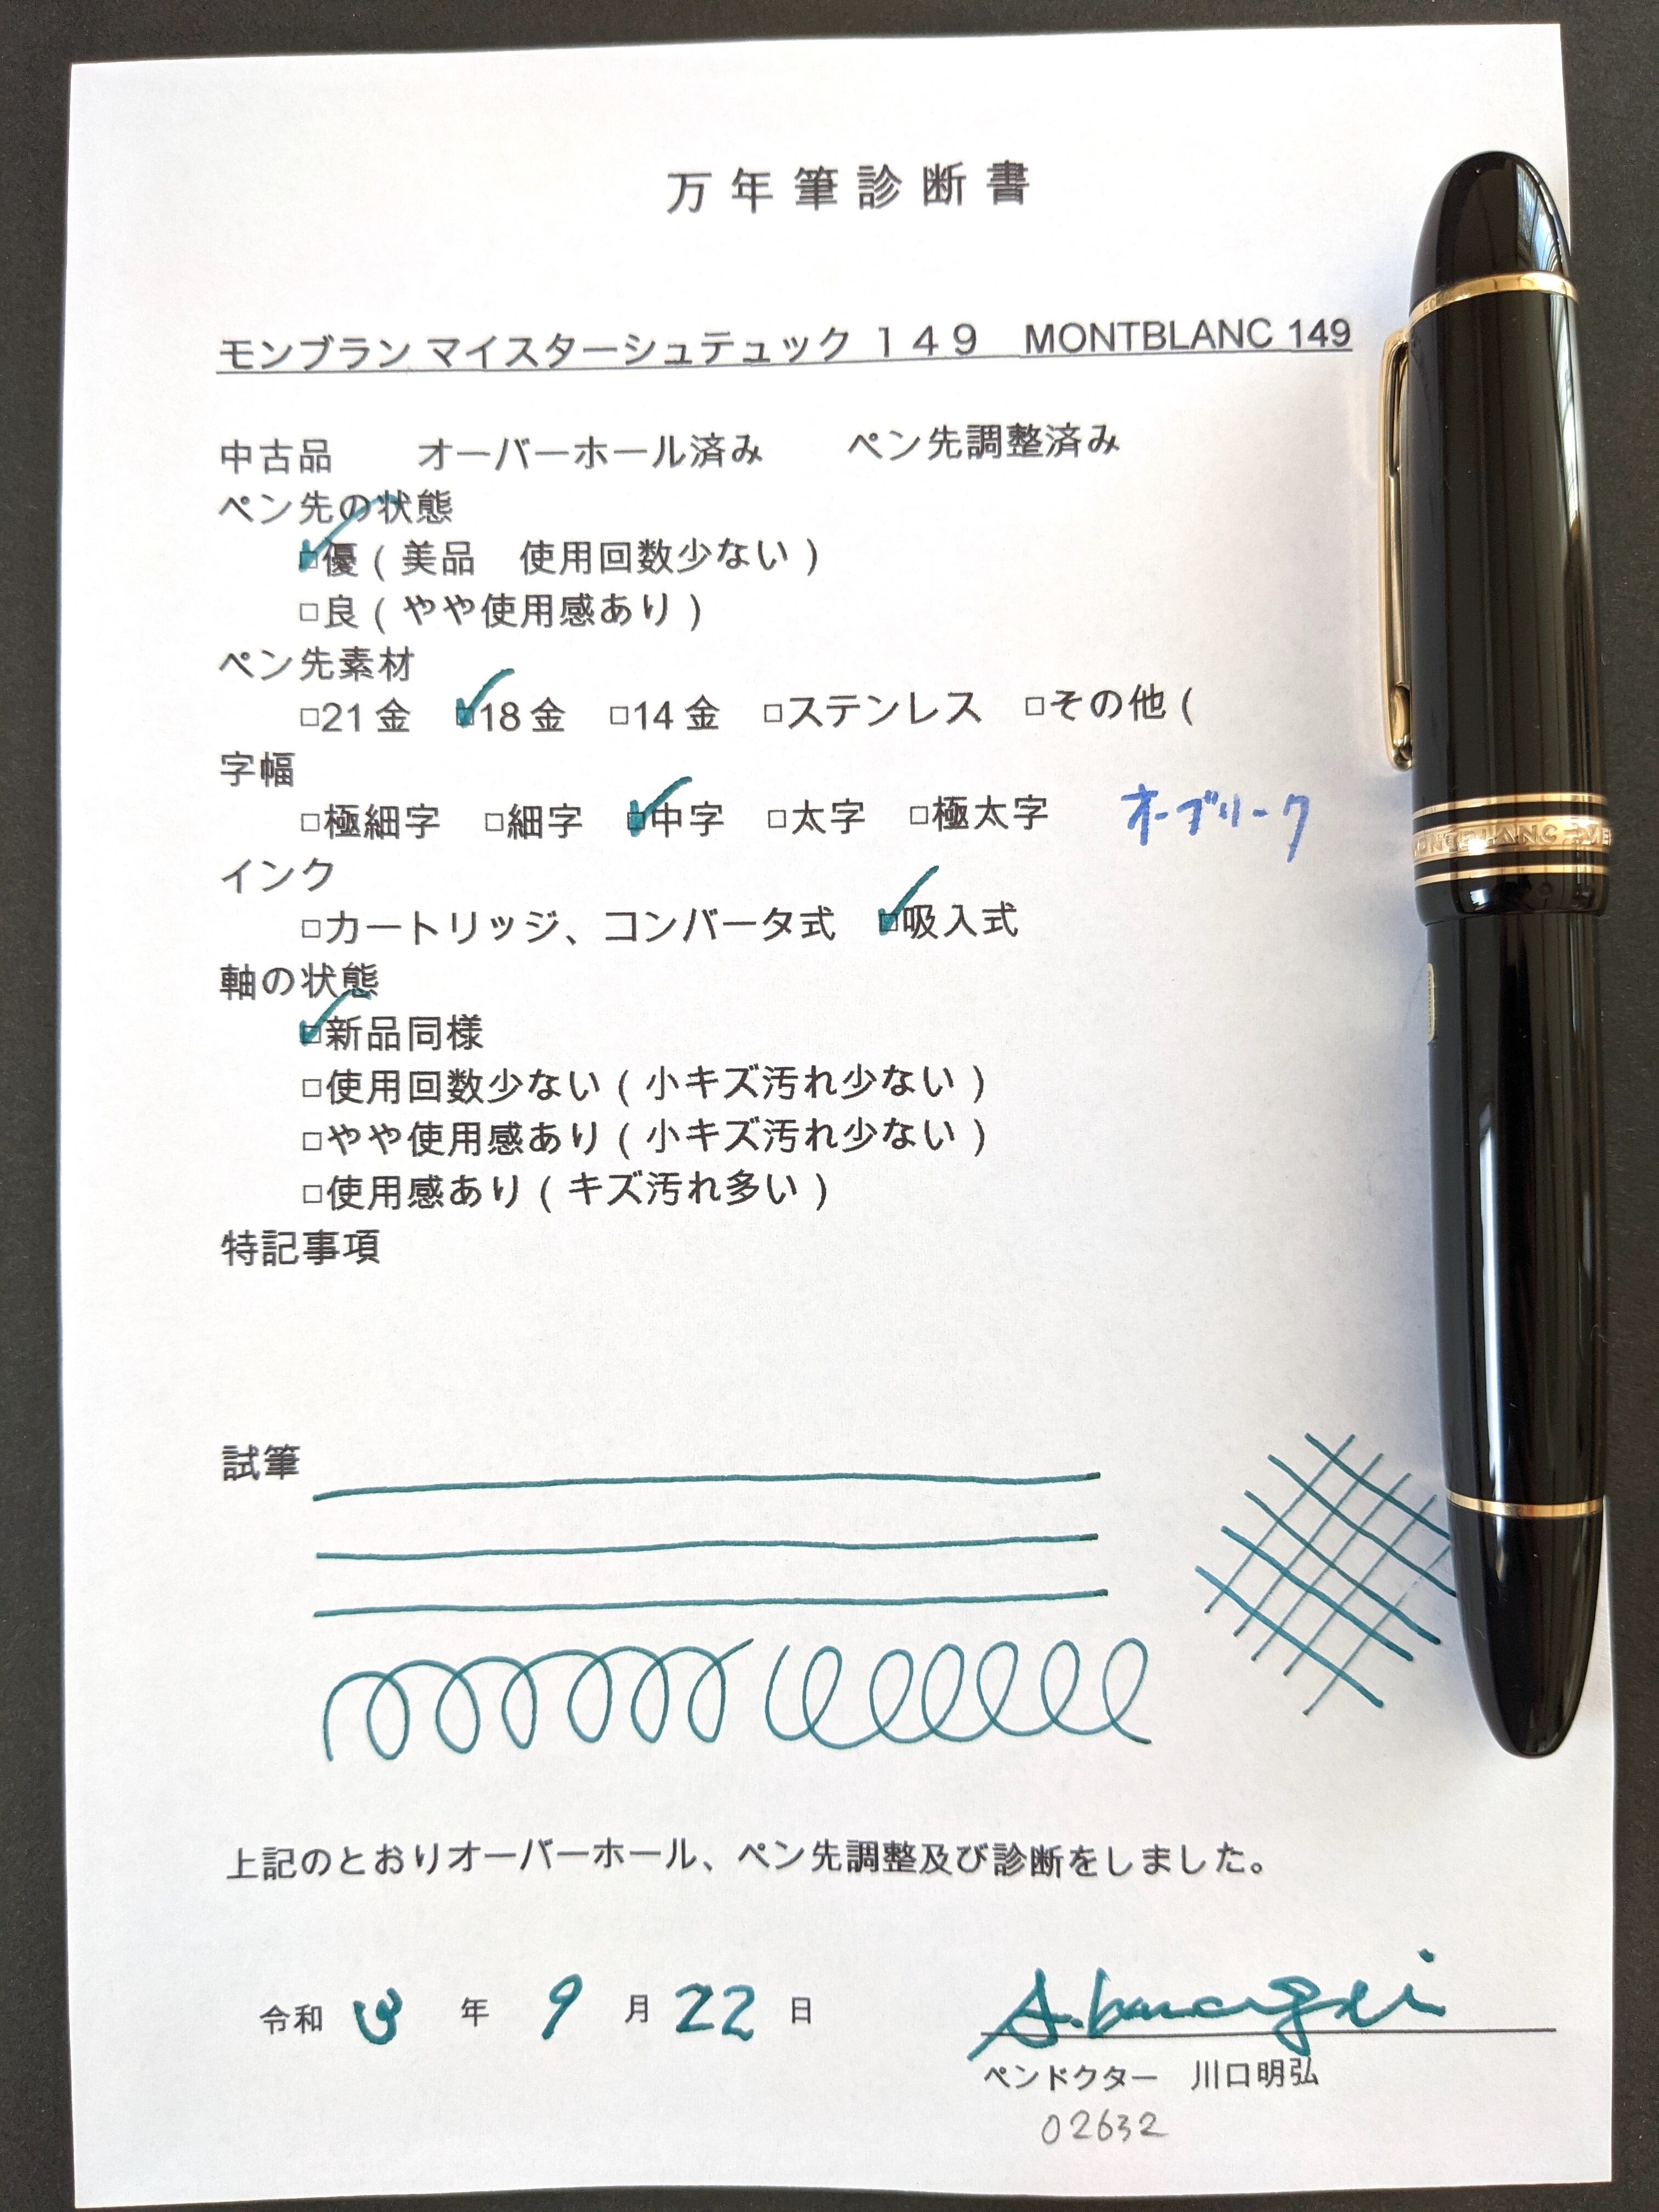 万年筆診断書
モンブラン マイスターシュテュック １４９　MONTBLANC 149
中古品　　オーバーホール済み　　ペン先調整済み
ペン先の状態
□優（美品　使用回数少ない）
□良（やや使用感あり）
ペン先素材
□21金　□18金　□14金　□ステンレス　□その他（
字幅
□極細字　□細字　□中字　□太字　□極太字　オーブリーク
インク
□カートリッジ、コンバータ式　□吸入式
軸の状態
□新品同様
□使用回数少ない（小キズ汚れ少ない）
□やや使用感あり（小キズ汚れ少ない）
□使用感あり（キズ汚れ多い）
特記事項
試筆
上記のとおりオーバーホール、ペン先調整及び診断をしました。
令和 3 年 9 月 22 日
ペンドクター　川口明弘
02632
MONTBLANC